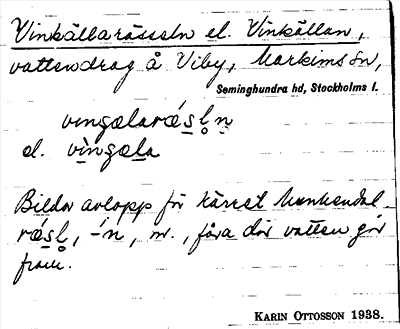 Vinkällarässeln el. Vinkällan,
vattendrag å Viby, Markims sn,
Seminghundra hd, Stockholms l.
vıŋgælaræ´sl̥n
el. vìŋgæla
Bildar avlopp för kärret Munkendal.
ræ´sl̥, -´n, m., fåra där vatten går
fram.
KARIN OTTOSSON 1938.